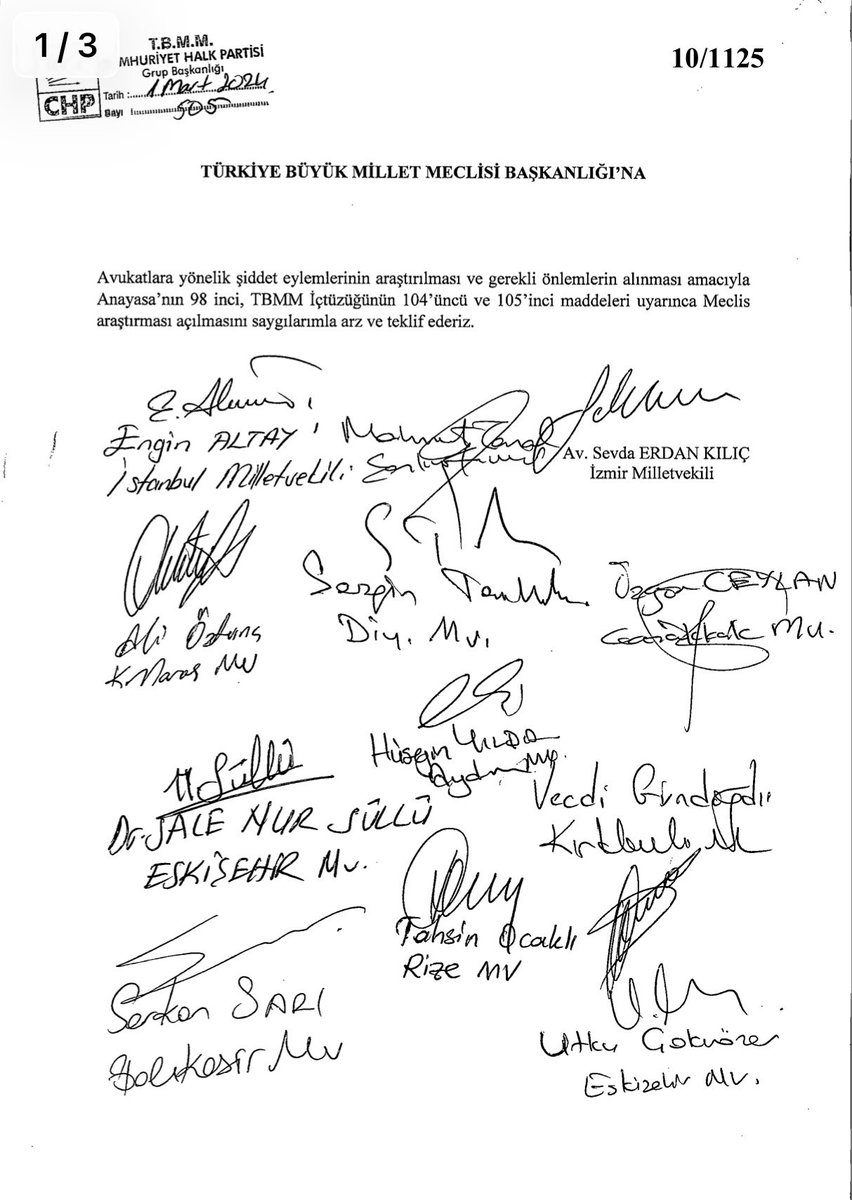 1/3
T.B.M.M.
MHURİYET HALK PARTİSİ
Grup Başkanlığı
Tarih : 1 Mart 2024
Sayı : 505
CHP
10/1125
TÜRKİYE BÜYÜK MİLLET MECLİSİ BAŞKANLIĞI'NA
Avukatlara yönelik şiddet eylemlerinin araştırılması ve gerekli önlemlerin alınması amacıyla
Anayasa'nın 98 inci, TBMM İçtüzüğünün 104'üncü ve 105'inci maddeleri uyarınca Meclis
araştırması açılmasını saygılarımla arz ve teklif ederiz.
Engin ALTAY
İstanbul Milletvekili
Mahmut Tanal
Av. Sevda ERDAN KILIÇ
İzmir Milletvekili
Ali Öztunç
K.Maraş MV
Sezgin Tanrıkulu
Diy. Mv.
Özgür CEYLAN
Çanakkale Mv.
Hüseyin YILDIZ
Aydın Mv.
H Süllü
Dr. JALE NUR SÜLLÜ
ESKİŞEHİR Mv.
Vecdi Gündoğdu
Kırklareli
Tahsin Ocaklı
Rize MV
Serkan SARI
Balıkesir Mv
Utku Çakırözer
Eskişehir Mv.